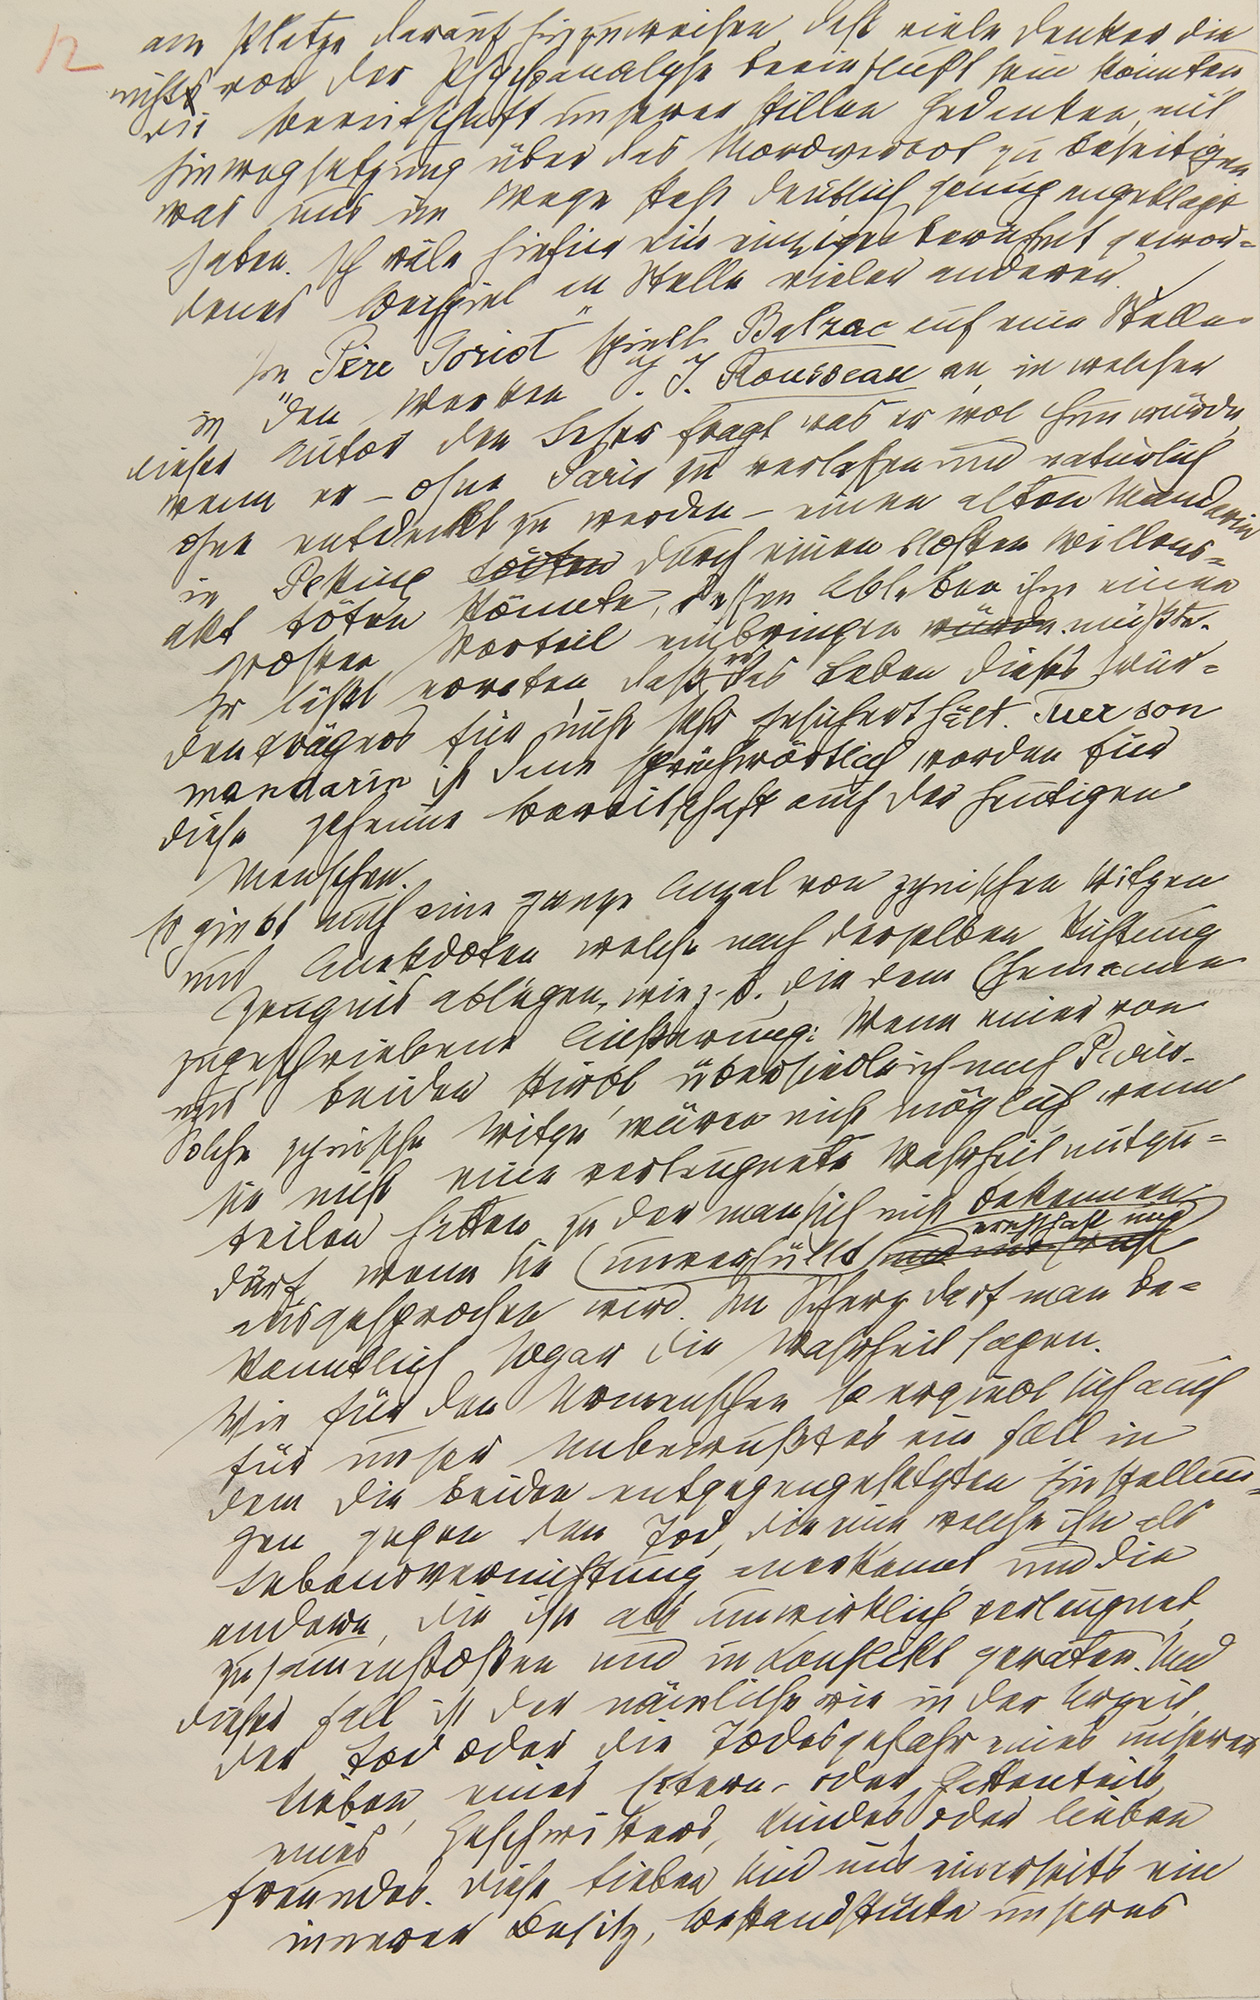 12
am Platze darauf hinzuweisen, daß viele Denker die
nichts von der Psychoanalyse beeinflußt sein konnten
die Bereitschaft unserer stillen Gedanken, mit
Hinwegsetzung über das Mordverbot zu beseitigen
was uns im Wege steht deutlich genug angeklagt
haben. Ich wäle hiefür ein einziges berühmt gewor=
denes Beispiel an Stelle vieler anderer.
Im "Père Goriot" spielt Balzac auf eine Stelle
in den Werken J. J. Rousseau an, in welcher
dieser Autor den Leser fragt was er wol thun würde,
wenn er – ohne Paris zu verlaßen und natürlich
ohne entdeckt zu werden – einen alten Mandarin
in Peking töten durch einen bloßen Willens=
akt töten könnte, deßen Ableben ihm einen
großen Vorteil einbringen würde müßte.
Er läßt erraten, daß er das Leben dieses Wür=
denträgers für nicht sehr gesichert hält. Tuer son
mandarin ist dann sprichwörtlich worden für
diese geheime Bereitschaft auch der heutigen
Menschen.
Es giebt auch eine ganze Anzal von zynischen Witzen
und Anekdoten welche nach derselben Richtung
Zeugnis ablegen, wie z. B. die dem Ehemanne
zugeschriebene Äußerung: Wenn einer von
uns beiden stirbt, übersiedle ich nach Paris.
Solche zynische Witze wären nicht möglich, wenn
sie nicht eine verleugnete Wahrheit mitzu=
teilen hätten zu der man sich nicht bekennen
darf, wenn sie ernsthaft und unverhüllt
ausgesprochen wird. Im Scherz darf man be=
kanntlich sogar die Wahrheit sagen.
Wie für den Urmenschen so ergiebt sich auch
für unser Unbewußtes ein Fall in
dem die beiden entgegengesetzten Einstellun=
gen gegen den Tod, die eine welche ihn als
Lebensvernichtung anerkennt und die
andere, die ihn als unwirklich verleugnet,
zusammenstoßen und in Konflikt geraten. Und
dieser Fall ist der nämliche wie in der Urzeit,
der Tod oder die Todesgefahr eines unserer
Lieben, eines Eltern- oder Gattenteils,
eines Geschwisters, Kindes oder lieben
Freundes. Diese Lieben sind uns einerseits ein
innerer Besitz, Bestandstücke unseres